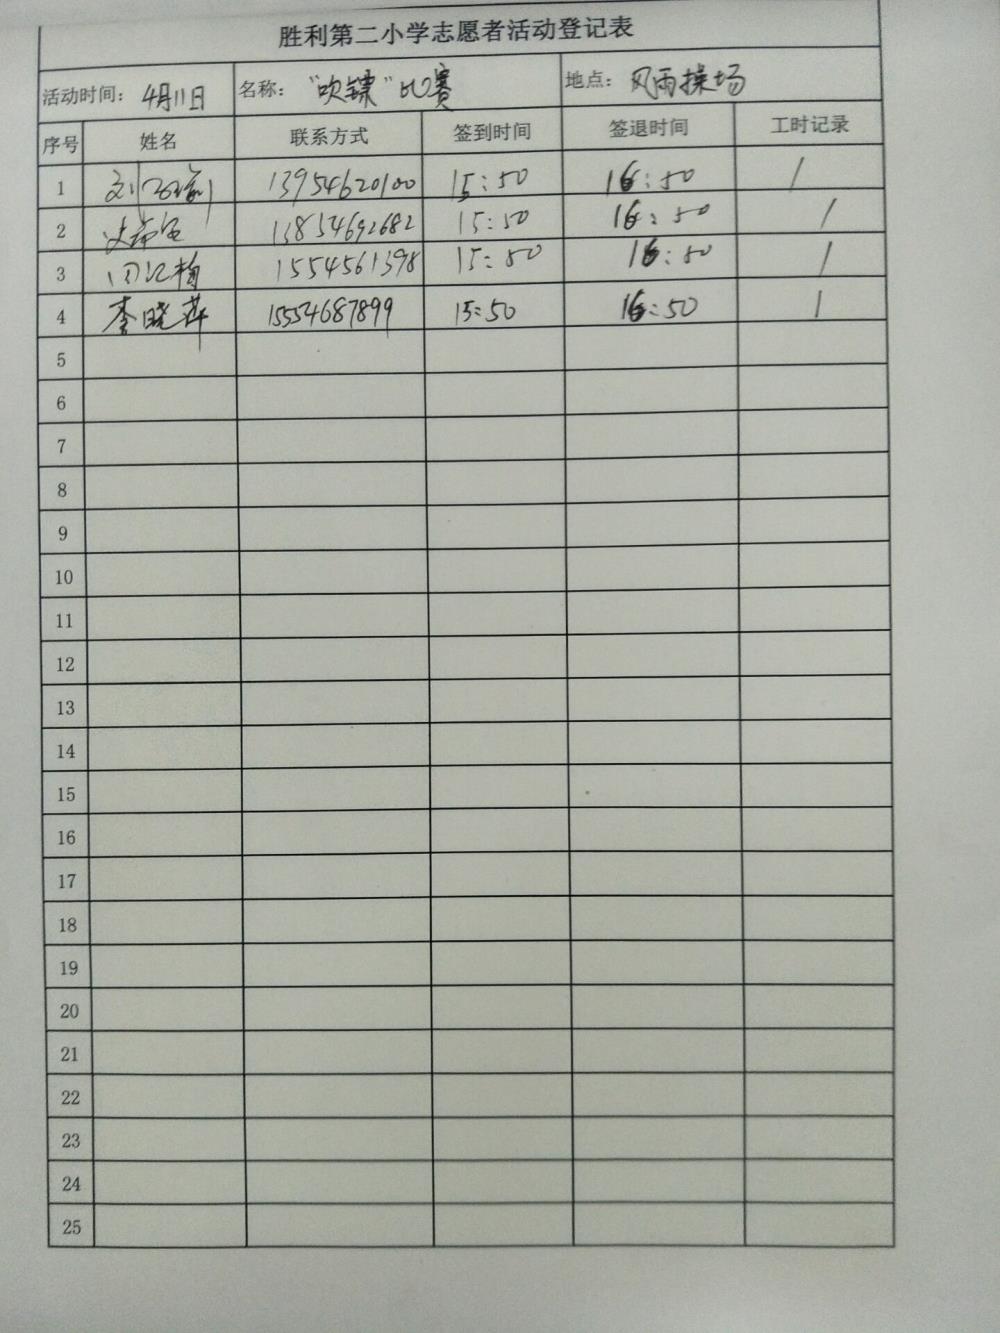 胜利第二小学志愿者活动登记表
活动时间： 4月11日 名称： “吹镖”比赛 地点： 风雨操场
序号 姓名 联系方式 签到时间 签退时间 工时记录
1 13954620100 15:50 16:50 1
2 13854692682 15:50 16:50 1
3 1554561398 15:50 16:50 1
4 李晓萍 15554687899 15:50 16:50 1
5
6
7
8
9
10
11
12
13
14
15
16
17
18
19
20
21
22
23
24
25